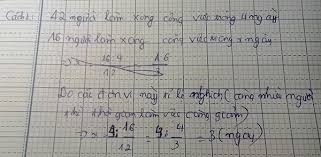 Cách 1: 12 người làm xong công việc trong 4 ngày
16 người làm xong công việc trong x ngày
=> x 16.4 16
12
Do các đơn vị này tỉ lệ nghịch (càng nhiều người
thì thời gian làm việc càng giảm)
=> x 4.16 4. 4 = 3 (ngày)
12 3